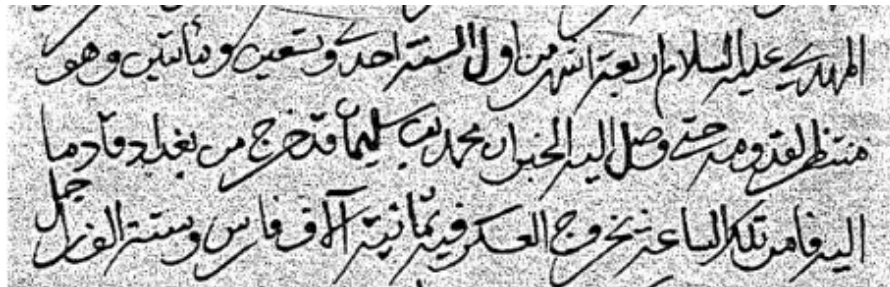 المهدي عليه السلام اربعة اشهر من اول السنة احدى وتسعين ومائتين وهو
منتظر لقدومه حتى وصل اليه الخبر ان محمد بن سليمان قد خرج من بغداد قادما
اليه فامر تلك الساعة بخروج العسكر فيه ثمانية آلاف فارس وستة الف راجل